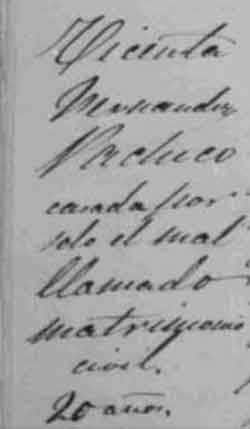 Vicenta
Hernandez
Pacheco
casada por
solo el mal
llamado
matrimonio
civil.
20 años.